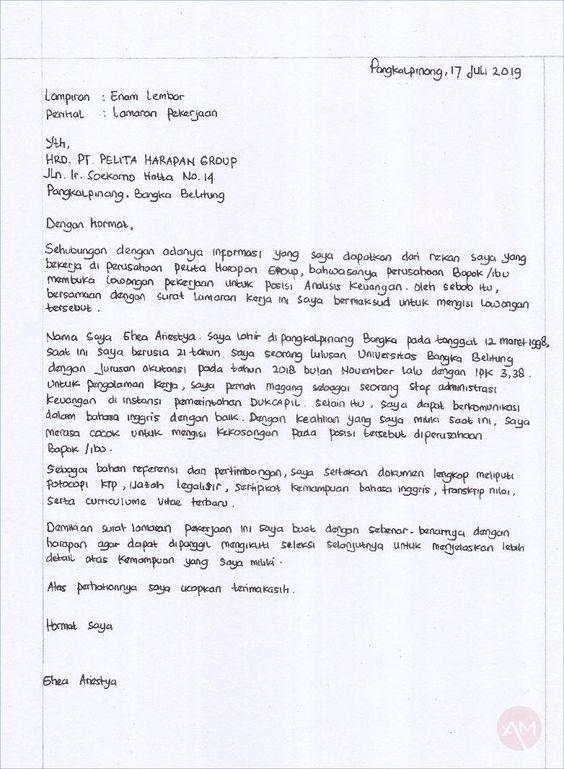 Pangkalpinang, 17 Juli 2019
Lampiran : Enam Lembar
Perihal : Lamaran Pekerjaan
Yth,
HRD. PT. PELITA HARAPAN GROUP
Jln. Ir. Soekarno Hatta No. 14
Pangkalpinang. Bangka Belitung
Dengan hormat,
Sehubungan dengan adanya informasi yang saya dapatkan dari rekan saya yang
bekerja di perusahaan Pelita Harapan Group, bahwasanya perusahaan Bapak /ibu
membuka lowongan pekerjaan untuk posisi Analisis Keuangan. Oleh sebab itu,
bersamaan dengan surat lamaran kerja ini saya bermaksud untuk mengisi lowongan
tersebut.
Nama Saya Ghea Ariestya. Saya lahir di pangkalpinang Bangka pada tanggal 12 maret 1998,
saat ini saya berusia 21 tahun. Saya seorang lulusan Universitas Bangka Belitung
dengan Jurusan akutansi pada tahun 2018 bulan November lalu dengan IPK 3,38.
Untuk pengalaman kerja, saya pernah magang sebagai seorang staf administrasi
keuangan di instansi pemerintahan DUKCAPIL. Selain itu, saya dapat berkomunikasi
dalam bahasa inggris dengan baik. Dengan keahlian yang saya miliki saat ini, saya
merasa cocok untuk mengisi kekosongan pada posisi tersebut diperusahaan
Bapak /ibu.
Sebagai bahan referensi dan pertimbangan, saya sertakan dokumen lengkap meliputi
fotocopi KTP, ijazah legalisir, sertipikat kemampuan bahasa inggris, transkrip nilai,
serta curriculume vitae terbaru.
Demikian surat lamaran pekerjaan ini saya buat dengan sebenar-benarnya dengan
harapan agar dapat dipanggil mengikuti seleksi selanjutnya untuk menjelaskan lebih
detail atas kemampuan yang saya miliki.
Atas perhatiannya saya ucapkan terimakasih.
Hormat saya
Ghea Ariestya
AM